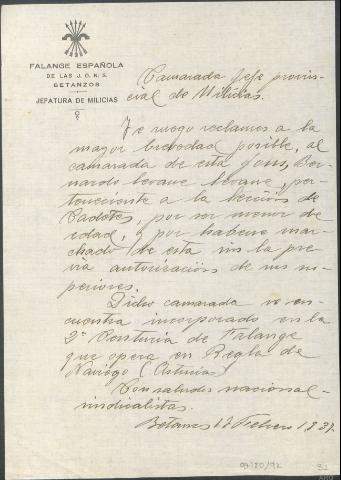 FALANGE ESPAÑOLA
DE LAS J. O. N. S.
BETANZOS
JEFATURA DE MILICIAS
Camarada Jefe provin-
cial de Milicias.
Te ruego reclames a la
mayor brevedad posible, al
camarada de esta Jons, Ber-
nardo Seoane Seoane, per-
teneciente a la Sección de
Cadetes, por ser menor de
edad, y por haberse mar-
chado de esta sin la pre-
via autorización de sus su-
periores.
Dicho camarada se en-
cuentra incorporado en la
2ª Centuria de Falange
que opera en Regla de
Naviego (Asturias)
Con saludos nacional-
sindicalistas.
Betanzos 13 Febrero 1.937.
32